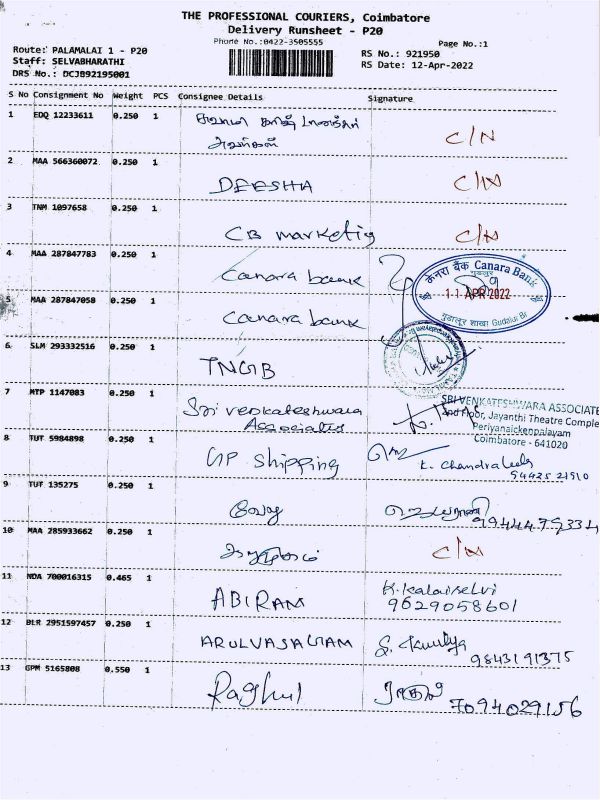 THE PROFESSIONAL COURIERS, Coimbatore
Delivery Runsheet - P20
Phone No.:0422-3505555
Page No.:1
Route: PALAMALAI 1 - P20
RS No.: 921950
Staff: SELVABHARATHI
RS Date: 12-Apr-2022
DRS No.: DCJB92195001
S No Consignment No Weight PCS Consignee Details Signature
1 EDQ 12233611 0.250 1 C/N
2 MAA 566360072 0.250 1 DEESHA C/N
3 TNM 1097658 0.250 1 CB marketig C/N
4 MAA 287847783 0.250 1 Canara bank
केनरा बैंक Canara Bank
11 APR 2022
गुडालूर शाखा Gudalur Br
5 MAA 287847058 0.250 1 Canara bank
6 SLM 293332516 0.250 1 TNGB
7 MTP 1147083 0.250 1 Sri venkateshwara
Associates
SRI VENKATESHWARA ASSOCIATE
2nd Floor, Jayanthi Theatre Comple
Periyanaickenpalayam
Coimbatore - 641020
8 TUT 5984898 0.250 1 GP shipping
9 TUF 135275 0.250 1
10 MAA 285933662 0.250 1 C/N
11 NDA 700016315 0.465 1 ABIRAM K.Kalaiselvi
9629058601
12 BLR 2951597457 0.250 1 ARULVASAGAM
9843191375
13 GPM 5165808 0.550 1 Raghul ராகுல்
7094029156